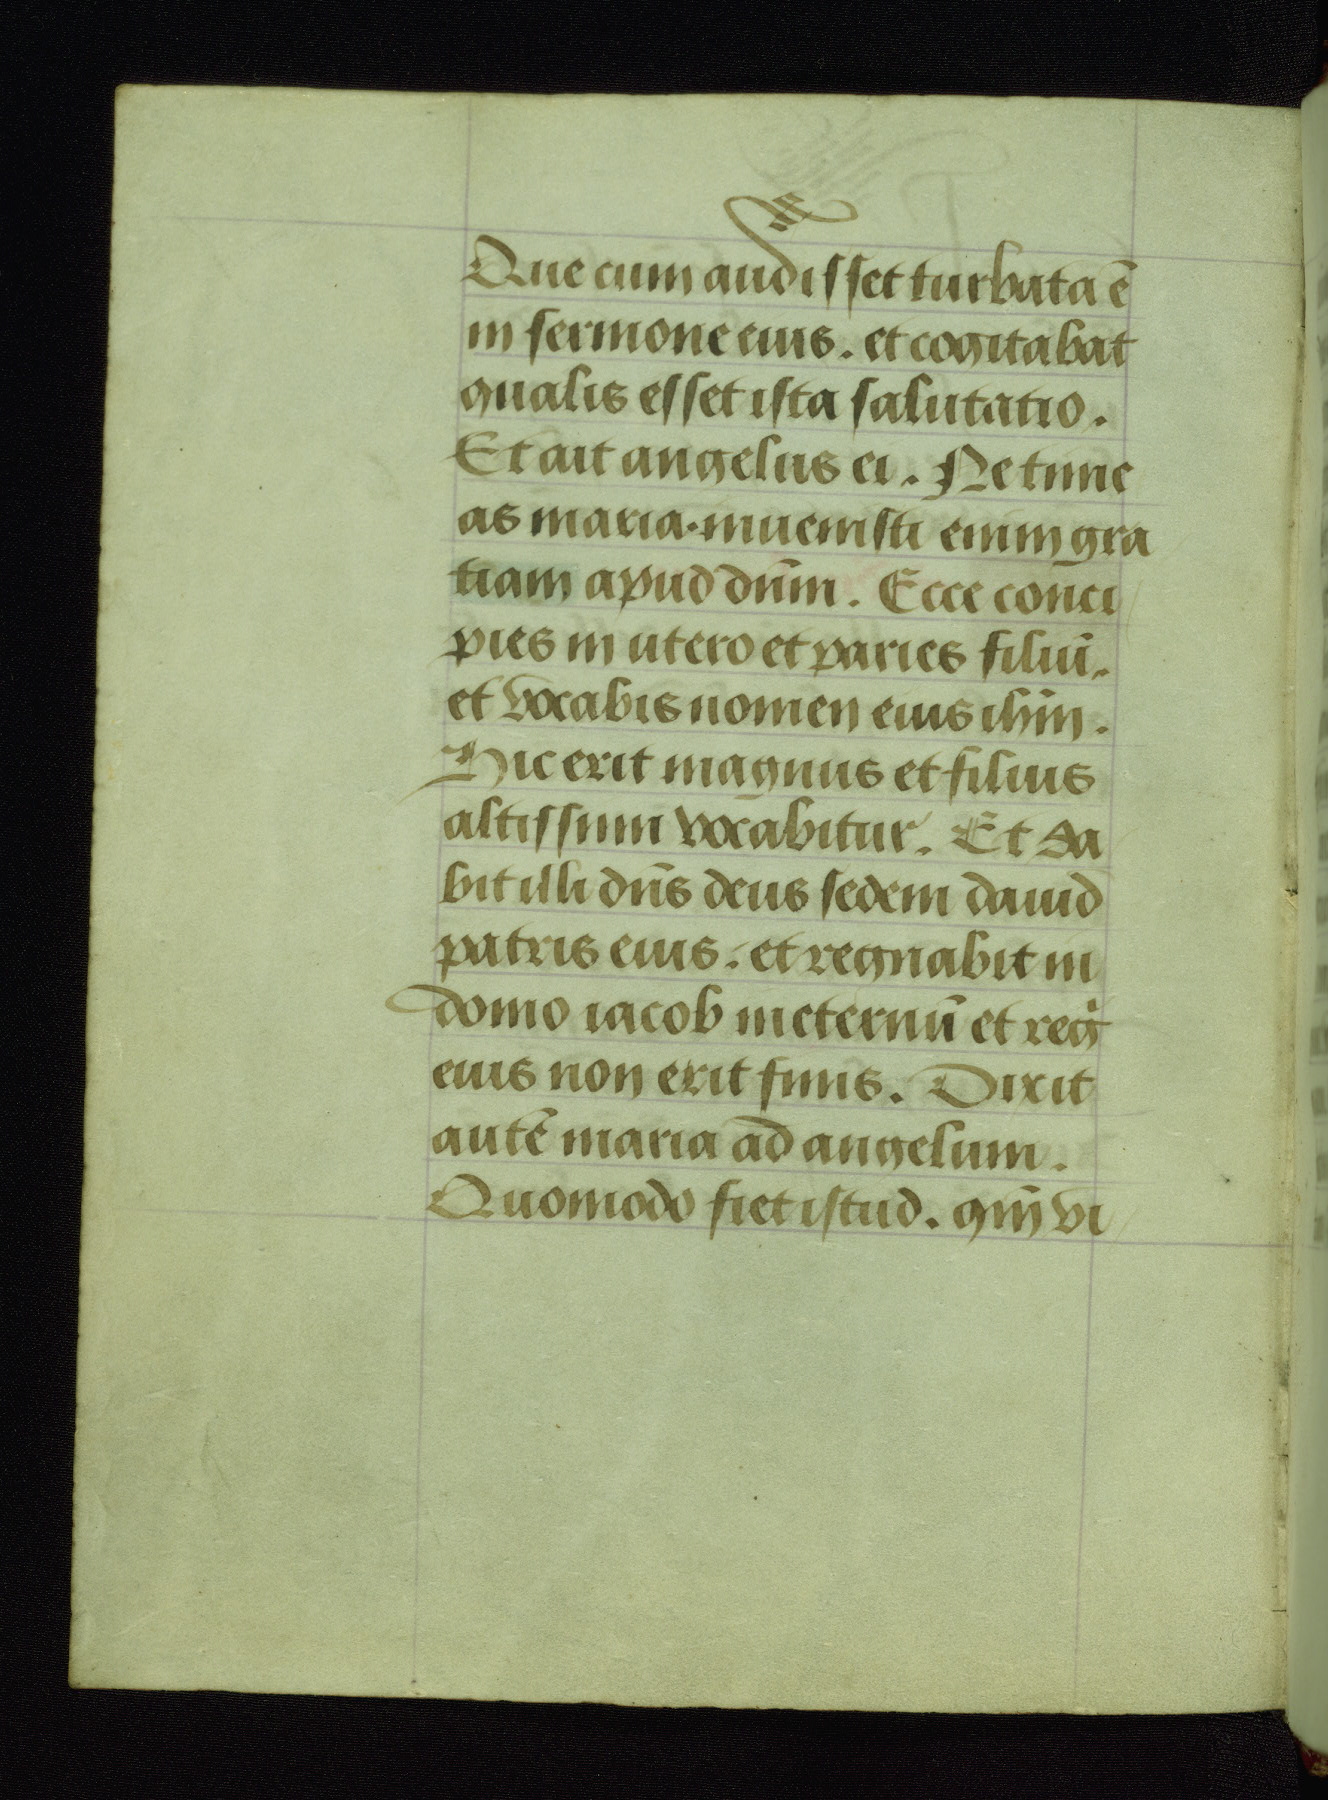 Que cum audisset turbata ē
in sermone eius. et cogitabat
qualis esset ista salutatio.
Et ait angelus ei. Ne time
as maria. inuenisti enim gra
tiam apud dn̄m. Ecce conci
pies in utero et paries filiū.
et vocabis nomen eius ihm̄.
Hic erit magnus et filius
altissimi vocabitur. Et da
bit illi dn̄s deus sedem dauid
patris eius. et regnabit in
domo iacob in eternū et regⁱ
eius non erit finis. Dixit
autē maria ad angelum.
Quomodo fiet istud. qm̄ vi